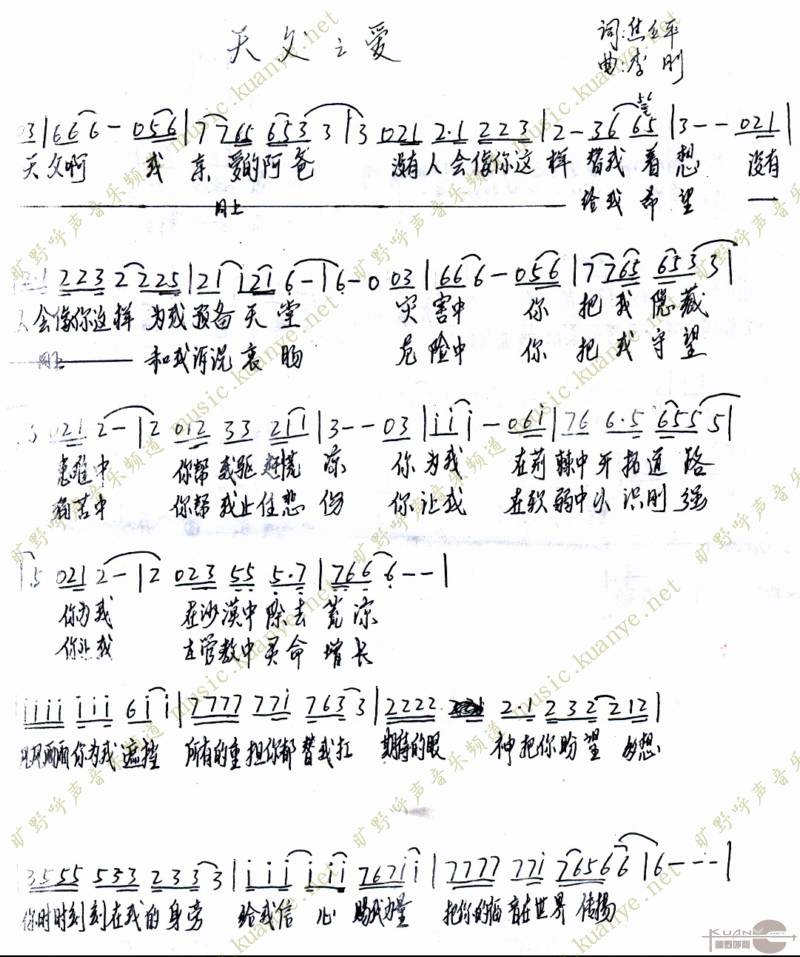 天父之爱
词:焦立平
曲:李刚
03|666-056|7765 6533|3 021 2·1 223|2-36 65|3--021|
天父啊 我亲爱的阿爸 没有人会像你这样替我着想 没有
同上 给我希望
2·1 223 2225|21121 6-|6-0 03|666-056|7765 6533|
人会像你这样为我预备天堂 灾害中 你把我隐藏
同上 和我诉说衷肠 危险中 你把我守望
021 2-|2 012 33 211|3--03|iii-061|76 6·5 6555|
患难中 你帮我驱赶慌凉 你为我 在荆棘中开拓道路
痛苦中 你帮我止住悲伤 你让我 在软弱中认识刚强
5 021 2-|2 023 55 5·7|766 6--|
你为我 在沙漠中除去荒凉
你让我 在管教中灵命增长
iiii iii 6ii|7777 77i 7633|2222 2·1 232 212|
风风雨雨你为我遮挡 所有的重担你都替我扛 期待的眼神把你盼望
3555 533 2333|iii iii 767ii|7777 77i 76566|6---|
你时时刻刻在我的身旁 给我信心 赐我力量 把你的福音在世界传扬
旷野呼声音乐频道 music.kuanye.net
KUANYE
旷野呼声